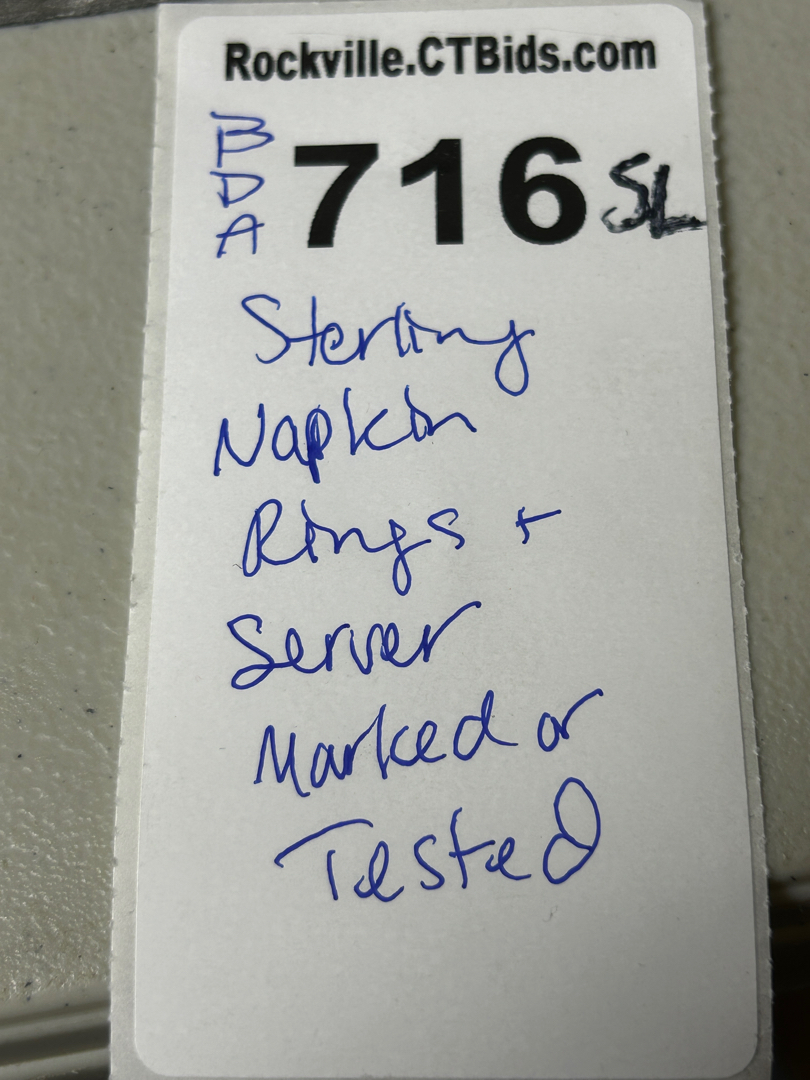 Rockville.CTBids.com
BDA
716 SL
Sterling
Napkin
Rings +
Server
Marked or
Tested